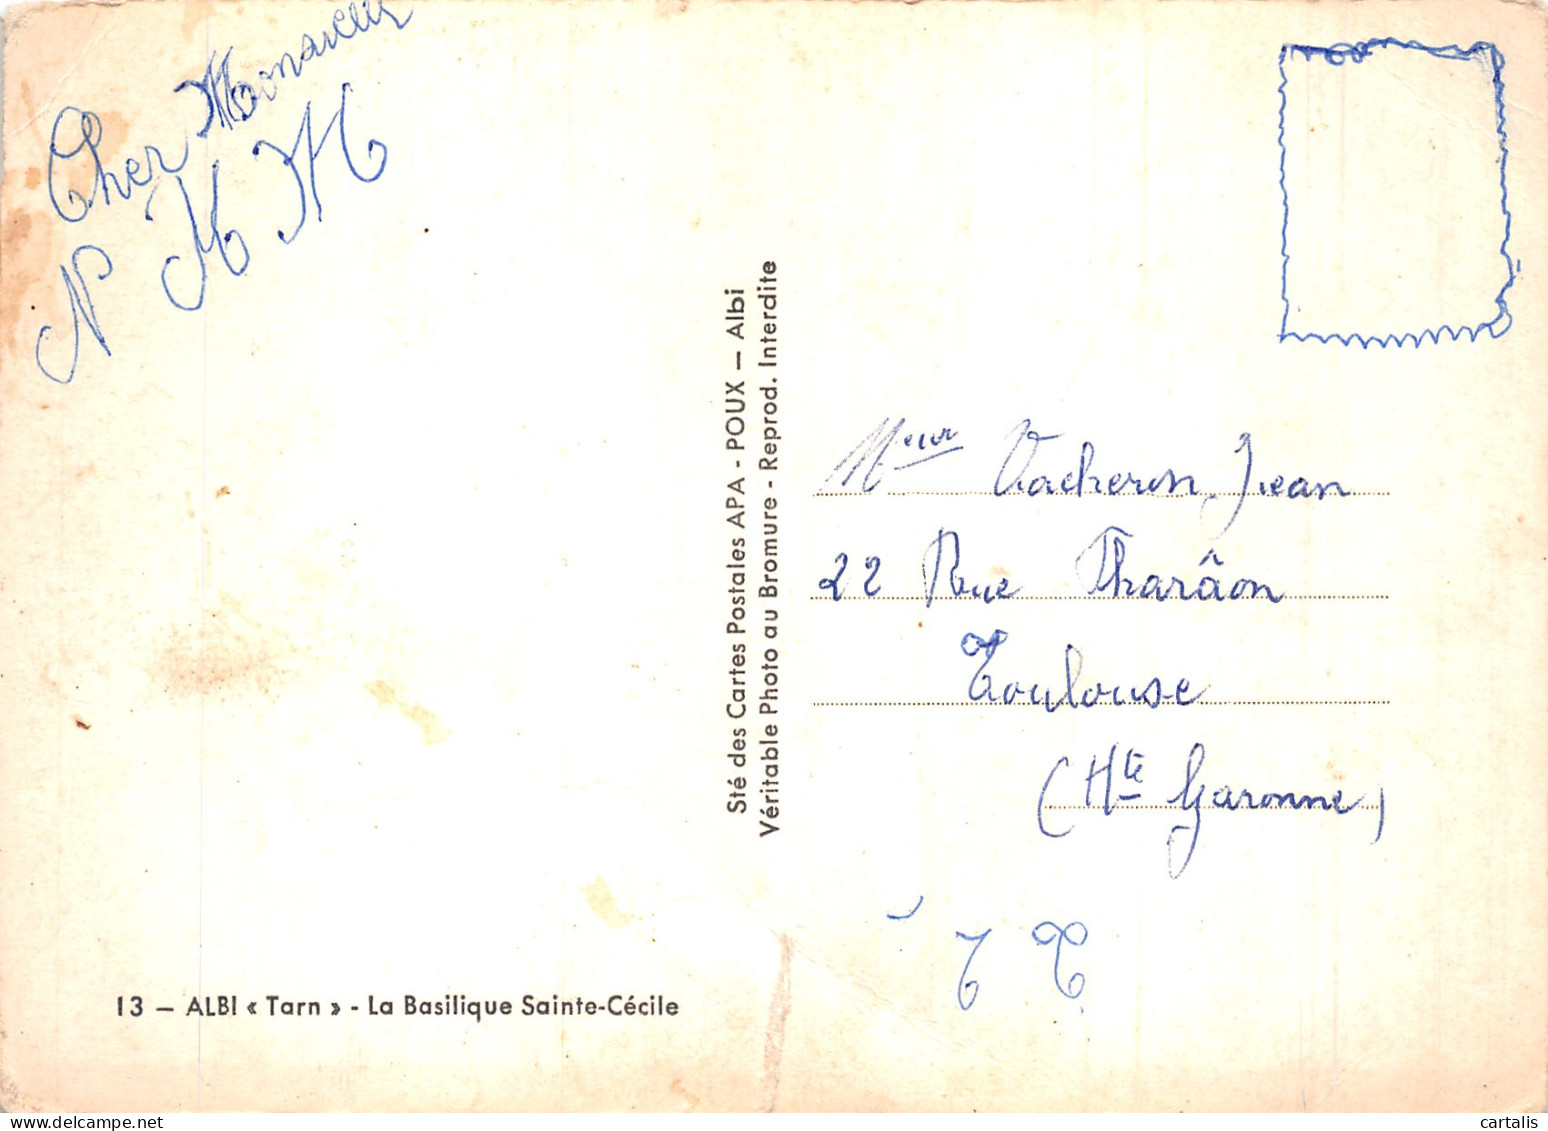 Cher Monsieur
N M M
Sté des Cartes Postales APA - POUX — Albi
Véritable Photo au Bromure - Reprod. Interdite
Meur Vacheron Jean
22 Rue Pharâon
Toulouse
(Hte Garonne)
T T
13 — ALBI « Tarn » - La Basilique Sainte-Cécile
cartalis